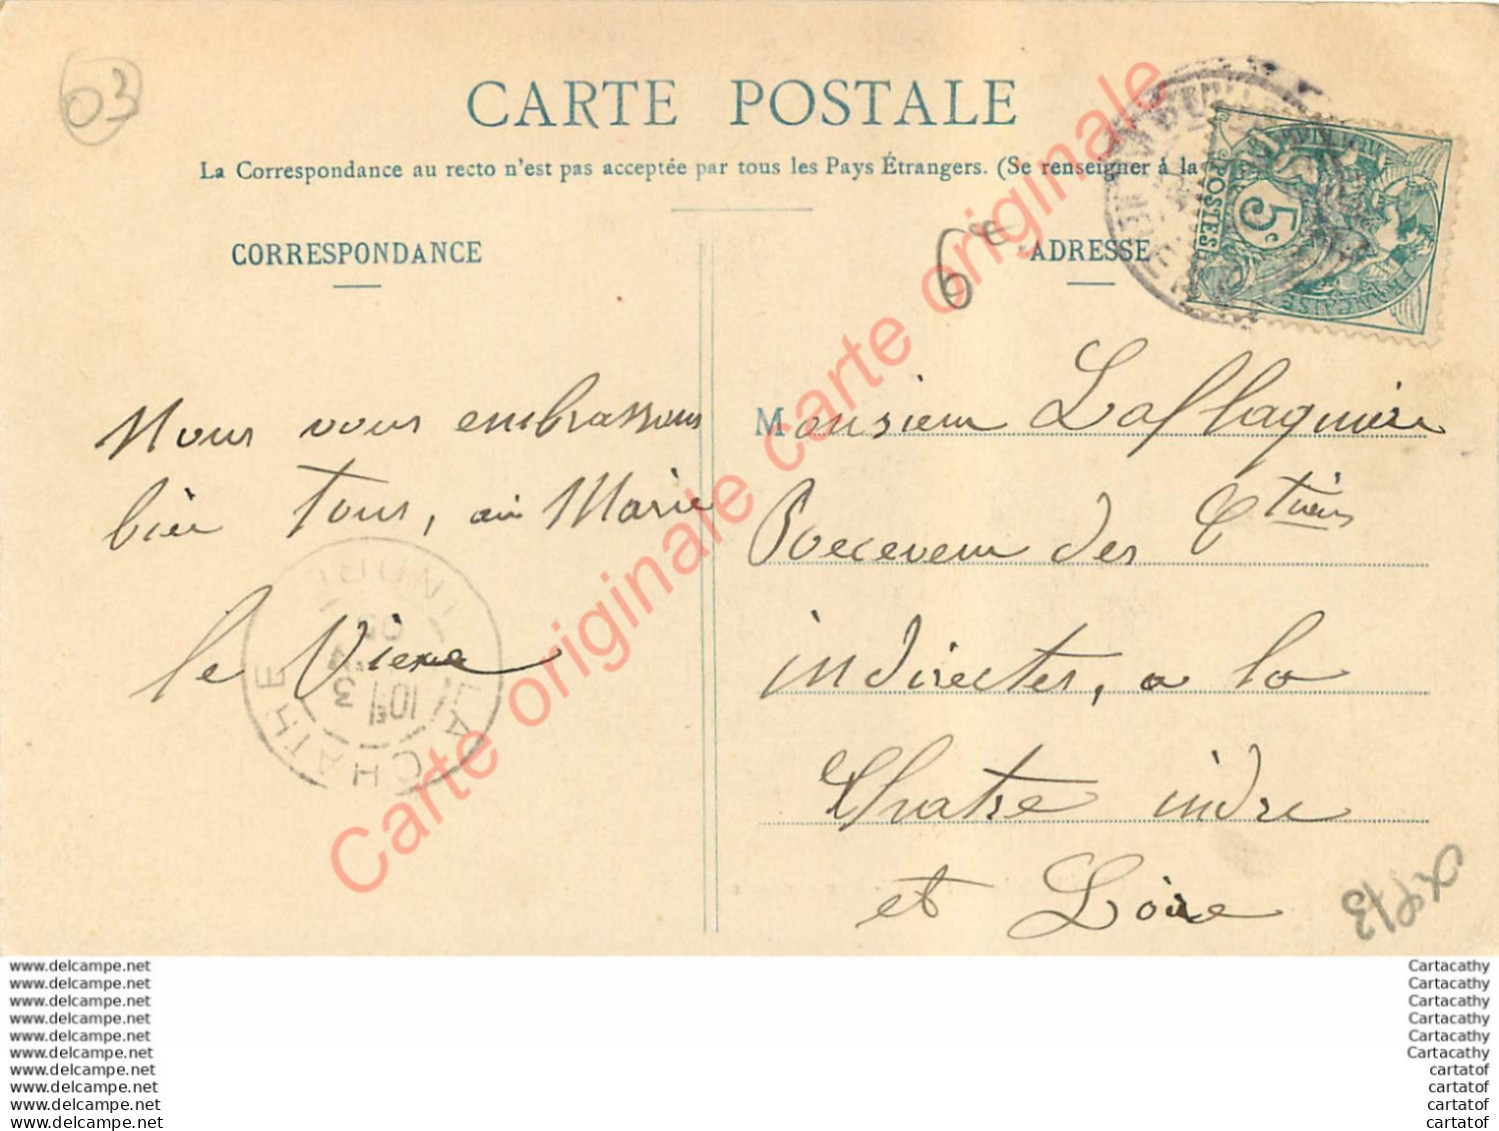 03
CARTE POSTALE
La Correspondance au recto n'est pas acceptée par tous les Pays Étrangers. (Se renseigner á la
RÉPUBLIQUE FRANÇAISE
POSTES
5c
CORRESPONDANCE
6e
ADRESSE
Nous vous embrassons
bien tous, Marie
le
LA CHATRE
INDRE
10
3
Monsieur Laflaquière
Receveur des Ctions
indirectes, a la
Chatre indre
et Loire
Carte originale carte originale carte originale
www.delcampe.net
www.delcampe.net
www.delcampe.net
www.delcampe.net
www.delcampe.net
www.delcampe.net
www.delcampe.net
www.delcampe.net
www.delcampe.net
www.delcampe.net
Cartacathy
Cartacathy
Cartacathy
Cartacathy
Cartacathy
Cartacathy
cartatof
cartatof
cartatof
cartatof